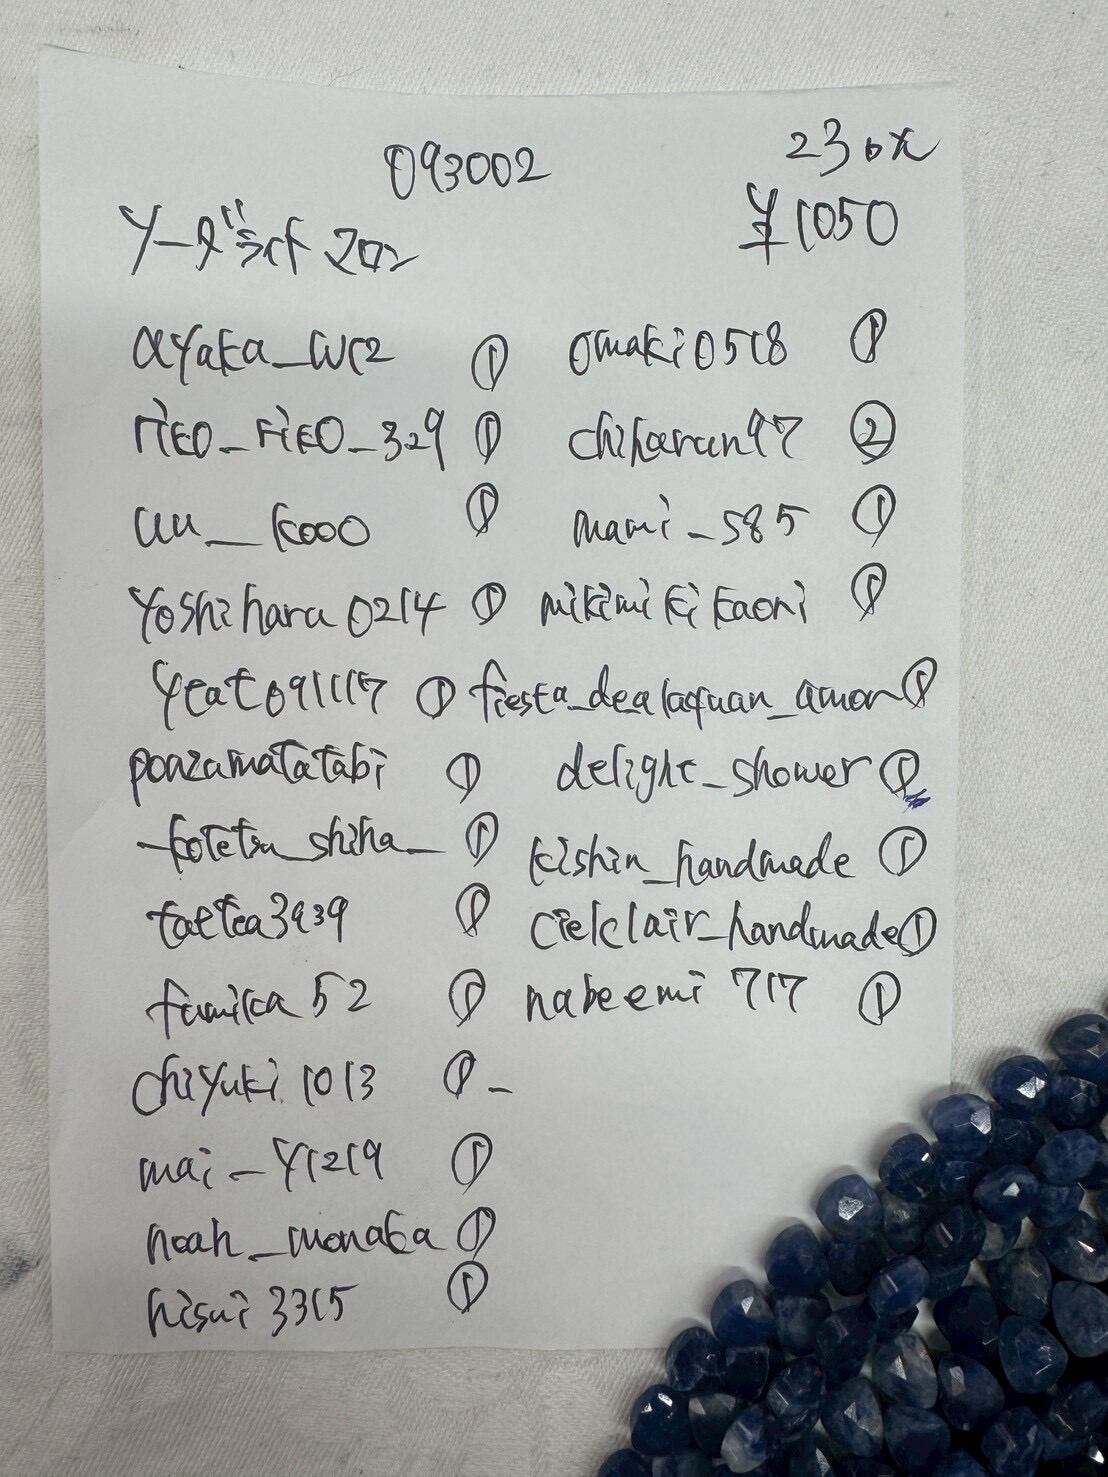 093002
230pc
ソーダライト マロン
¥1050
ayaka_wr2 ①
rieo_rieo_329 ①
uu__kooo ①
yoshiharu0214 ①
yeat091117 ①
poazamatatabi ①
_kotetsu_shiha_ ①
taetea3939 ①
fumika52 ①
chiyuki1013 ① -
mai_y1219 ①
noah_monaka ①
hisui3315 ①
omaki0518 ①
chiharun97 ②
mami_585 ①
mikimikikaori ①
fiesta_dealaquan_amor ①
delight_shower ①
kishin_handmade ①
cielclair_handmade ①
nabeemi717 ①